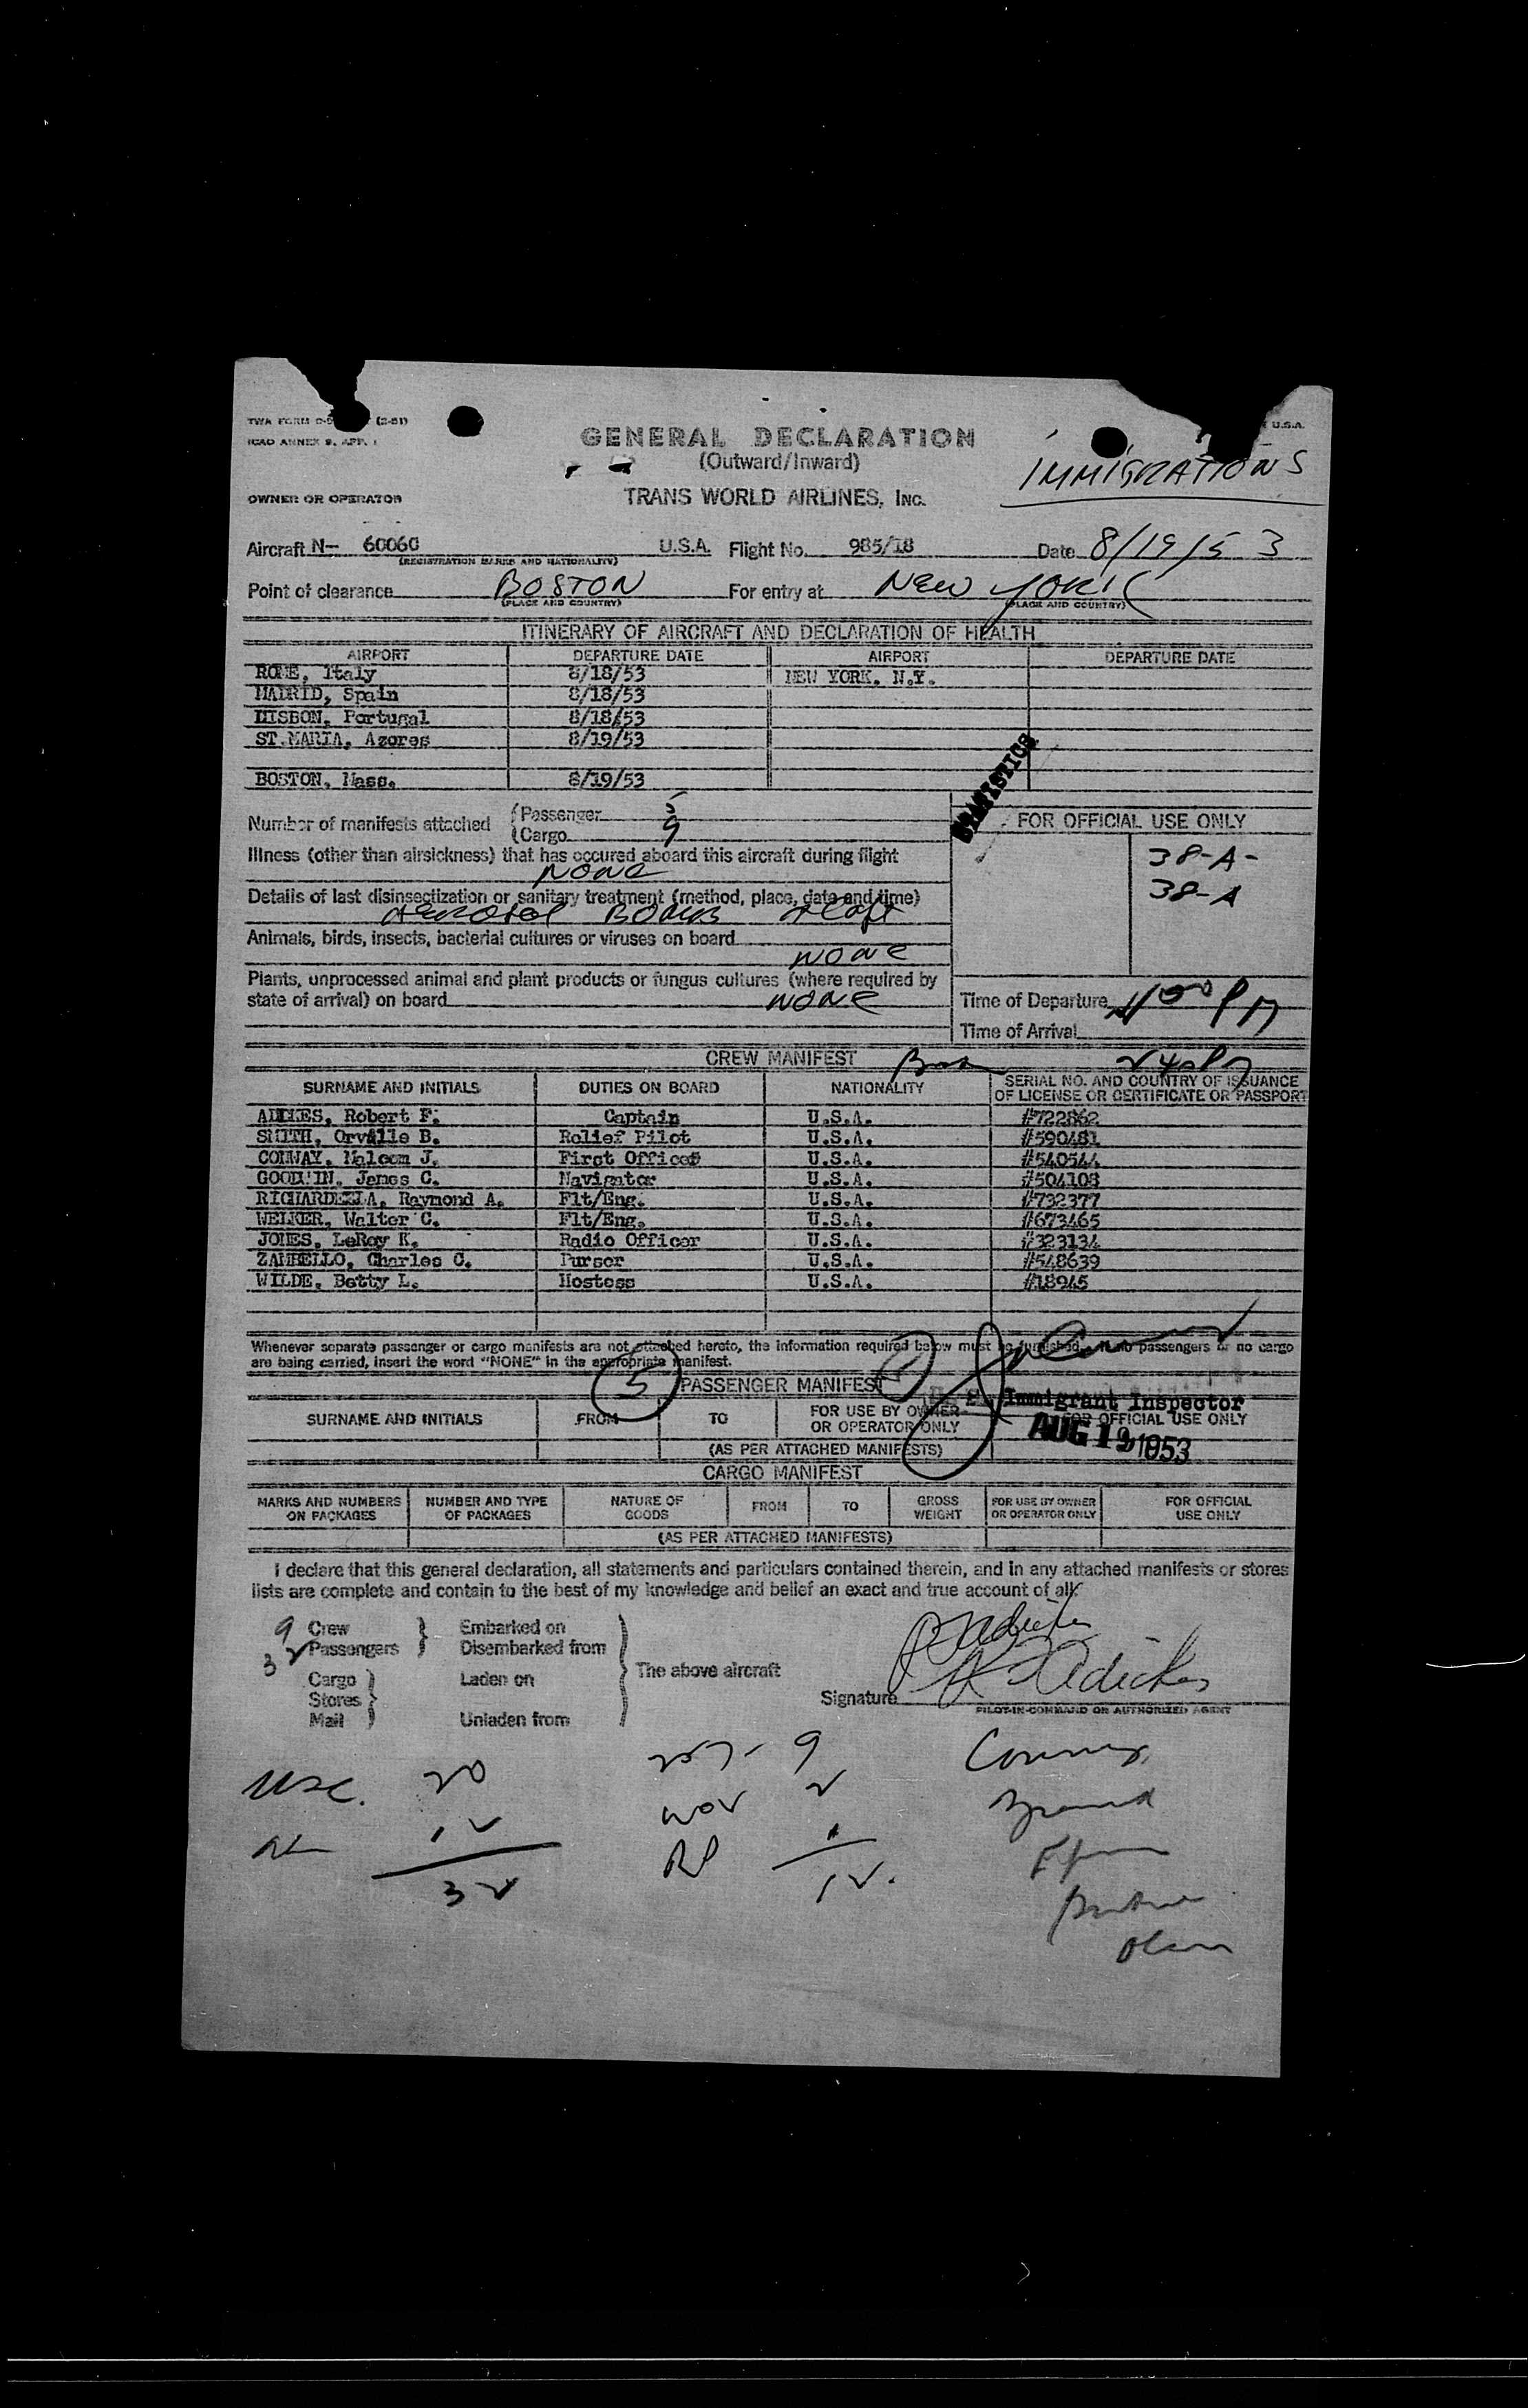 TWA FORM (2-51)
ICAO ANNEX 9, APP. 1
U.S.A.
GENERAL DECLARATION
(Outward/Inward)
IMMIGRATIONS
OWNER OR OPERATOR TRANS WORLD AIRLINES, INC.
Aircraft N- 60060 U.S.A. Flight No. 985/18 Date 8/19/53
(REGISTRATION MARKS AND NATIONALITY)
Point of clearance BOSTON For entry at NEW YORK
(PLACE AND COUNTRY) (PLACE AND COUNTRY)
ITINERARY OF AIRCRAFT AND DECLARATION OF HEALTH
AIRPORT DEPARTURE DATE AIRPORT DEPARTURE DATE
ROME, Italy 8/18/53 NEW YORK, N.Y.
MADRID, Spain 8/18/53
LISBON, Portugal 8/18/53
ST.MARIA, Azores 8/19/53
BOSTON, Mass. 8/19/53
STATISTICS
Number of manifests attached (Passenger 5
(Cargo 9
FOR OFFICIAL USE ONLY
38-A-
38-A
Illness (other than airsickness) that has occured aboard this aircraft during flight
NONE
Details of last disinsectization or sanitary treatment (method, place, date and time)
AEROSOL BOMB
Animals, birds, insects, bacterial cultures or viruses on board
NONE
Plants, unprocessed animal and plant products or fungus cultures (where required by
state of arrival) on board NONE
Time of Departure
Time of Arrival
CREW MANIFEST
SURNAME AND INITIALS DUTIES ON BOARD NATIONALITY SERIAL NO. AND COUNTRY OF ISSUANCE
OF LICENSE OR CERTIFICATE OR PASSPORT
Robert F. Captain U.S.A. #722862
SMITH, Orville B. Relief Pilot U.S.A. #590481
CONWAY, Malcom J. First Officer U.S.A. #540544
GOODWIN, James C. Navigator U.S.A. #504108
RICHARDELLA, Raymond A. Flt/Eng. U.S.A. #732377
WELKER, Walter C. Flt/Eng. U.S.A. #673465
JONES, LeRoy K. Radio Officer U.S.A. #323134
ZAMBELLO, Charles C. Purser U.S.A. #548639
WILDE, Betty L. Hostess U.S.A. #18945
Whenever separate passenger or cargo manifests are not attached hereto, the information required below must be furnished. If no passengers or no cargo
are being carried, insert the word "NONE" in the appropriate manifest.
5 PASSENGER MANIFEST
Immigrant Inspector
SURNAME AND INITIALS FROM TO FOR USE BY OWNER
OR OPERATOR ONLY FOR OFFICIAL USE ONLY
AUG 19 1953
(AS PER ATTACHED MANIFESTS)
CARGO MANIFEST
MARKS AND NUMBERS
ON PACKAGES NUMBER AND TYPE
OF PACKAGES NATURE OF
GOODS FROM TO GROSS
WEIGHT FOR USE BY OWNER
OR OPERATOR ONLY FOR OFFICIAL
USE ONLY
(AS PER ATTACHED MANIFESTS)
I declare that this general declaration, all statements and particulars contained therein, and in any attached manifests or stores
lists are complete and contain to the best of my knowledge and belief an exact and true account of all
9 Crew Embarked on
32 Passengers Disembarked from
Cargo Laden on The above aircraft
Stores
Mail Unladen from
Signature R F Adickes
PILOT-IN-COMMAND OR AUTHORIZED AGENT
USC. 20
12
32
9
2
RP 1
12.